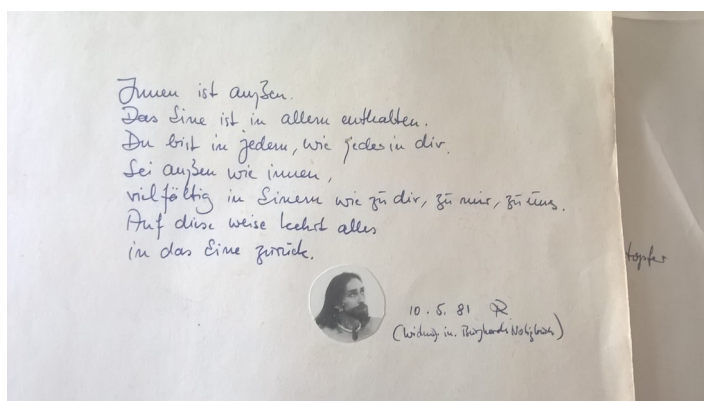 Innen ist außen.
Das Eine ist in allem enthalten.
Du bist in jedem, wie jedes in dir.
Sei außen wie innen,
vielfältig in Einem wie zu dir, zu mir, zu uns.
Auf diese weise kehrt alles
in das Eine zurück.
10.5.81 R
(Widmg in Burghards Notizbuch)
topfer